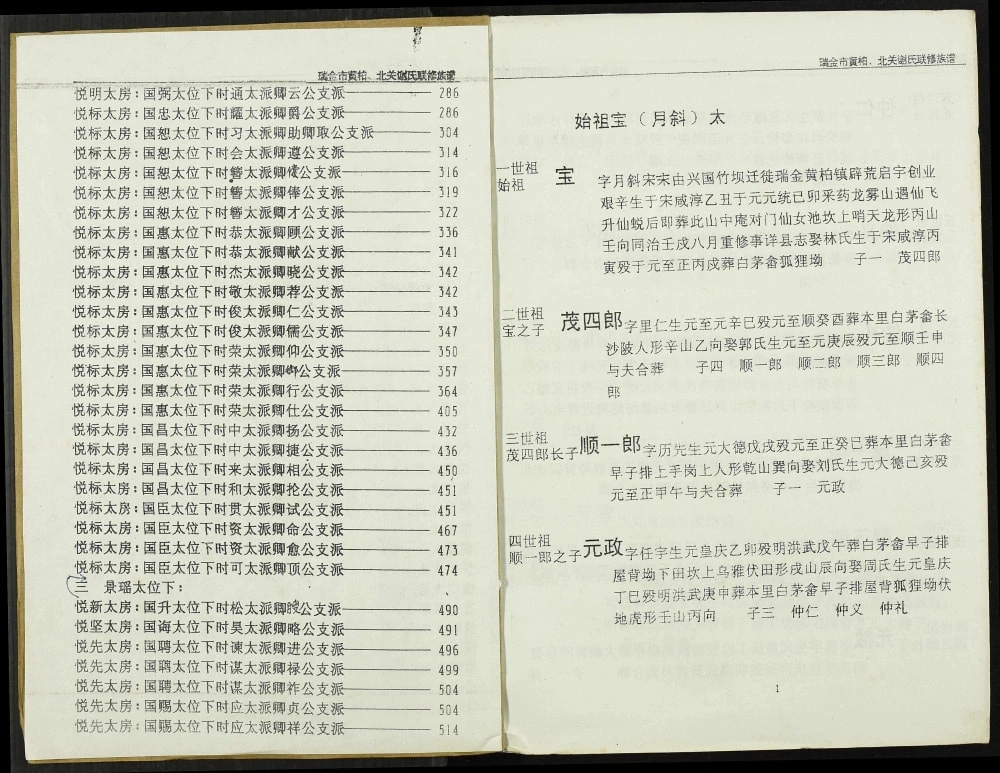 瑞金市黄柏、北关谢氏联修族谱
悦明太房：国弼太位下时通太派卿云公支派 286
悦标太房：国忠太位下时耀太派卿爵公支派 286
悦标太房：国恕太位下时习太派卿助卿取公支派 304
悦标太房：国恕太位下时会太派卿遵公支派 314
悦标太房：国恕太位下时簪太派卿公支派 316
悦标太房：国恕太位下时簪太派卿俸公支派 319
悦标太房：国恕太位下时簪太派卿才公支派 322
悦标太房：国惠太位下时恭太派卿顾公支派 336
悦标太房：国惠太位下时恭太派卿献公支派 341
悦标太房：国惠太位下时杰太派卿晓公支派 342
悦标太房：国惠太位下时敬太派卿荐公支派 342
悦标太房：国惠太位下时俊太派卿仁公支派 343
悦标太房：国惠太位下时俊太派卿儒公支派 347
悦标太房：国惠太位下时荣太派卿仰公支派 350
悦标太房：国惠太位下时荣太派卿公支派 357
悦标太房：国惠太位下时荣太派卿行公支派 364
悦标太房：国惠太位下时荣太派卿仕公支派 405
悦标太房：国昌太位下时中太派卿扬公支派 432
悦标太房：国昌太位下时中太派卿捷公支派 436
悦标太房：国昌太位下时来太派卿相公支派 450
悦标太房：国昌太位下时和太派卿抡公支派 451
悦标太房：国臣太位下时贯太派卿试公支派 451
悦标太房：国臣太位下时资太派卿命公支派 467
悦标太房：国臣太位下时资太派卿愈公支派 473
悦标太房：国臣太位下时可太派卿顶公支派 474
三 景瑶太位下：
悦新太房：国升太位下时松太派卿公支派 490
悦坚太房：国诲太位下时昊太派卿略公支派 491
悦先太房：国聘太位下时谏太派卿进公支派 496
悦先太房：国聘太位下时谋太派卿禄公支派 499
悦先太房：国聘太位下时谋太派卿祚公支派 504
悦先太房：国赐太位下时应太派卿贞公支派 504
悦先太房：国赐太位下时应太派卿祥公支派 514
瑞金市黄柏、北关谢氏联修族谱
始祖宝（月斜）太
一世祖
始祖
宝 字月斜宋末由兴国竹坝迁徙瑞金黄柏镇辟荒启宇创业
艰辛生于宋咸淳乙丑于元元统己卯采药龙雾山遇仙飞
升仙蜕后即葬此山中庵对门仙女池坎上哨天龙形丙山
壬向同治壬戌八月重修事详县志娶林氏生于宋咸淳丙
寅殁于元至正丙戌葬白茅畲狐狸坳 子一 茂四郎
二世祖
宝之子
茂四郎 字里仁生元至元辛巳殁元至顺癸酉葬本里白茅畲长
沙陂人形辛山乙向娶郭氏生元至元庚辰殁元至顺壬申
与夫合葬 子四 顺一郎 顺二郎 顺三郎 顺四
郎
三世祖
茂四郎长子
顺一郎 字历先生元大德戊戌殁元至正癸巳葬本里白茅畲
早子排上手岗上人形乾山巽向娶刘氏生元大德己亥殁
元至正甲午与夫合葬 子一 元政
四世祖
顺一郎之子
元政 字任宇生元皇庆乙卯殁明洪武戊午葬白茅畲早子排
屋背坳下田坎上乌雅伏田形戌山辰向娶周氏生元皇庆
丁巳殁明洪武庚申葬本里白茅畲早子排屋背狐狸坳伏
地虎形壬山丙向 子三 仲仁 仲义 仲礼
1